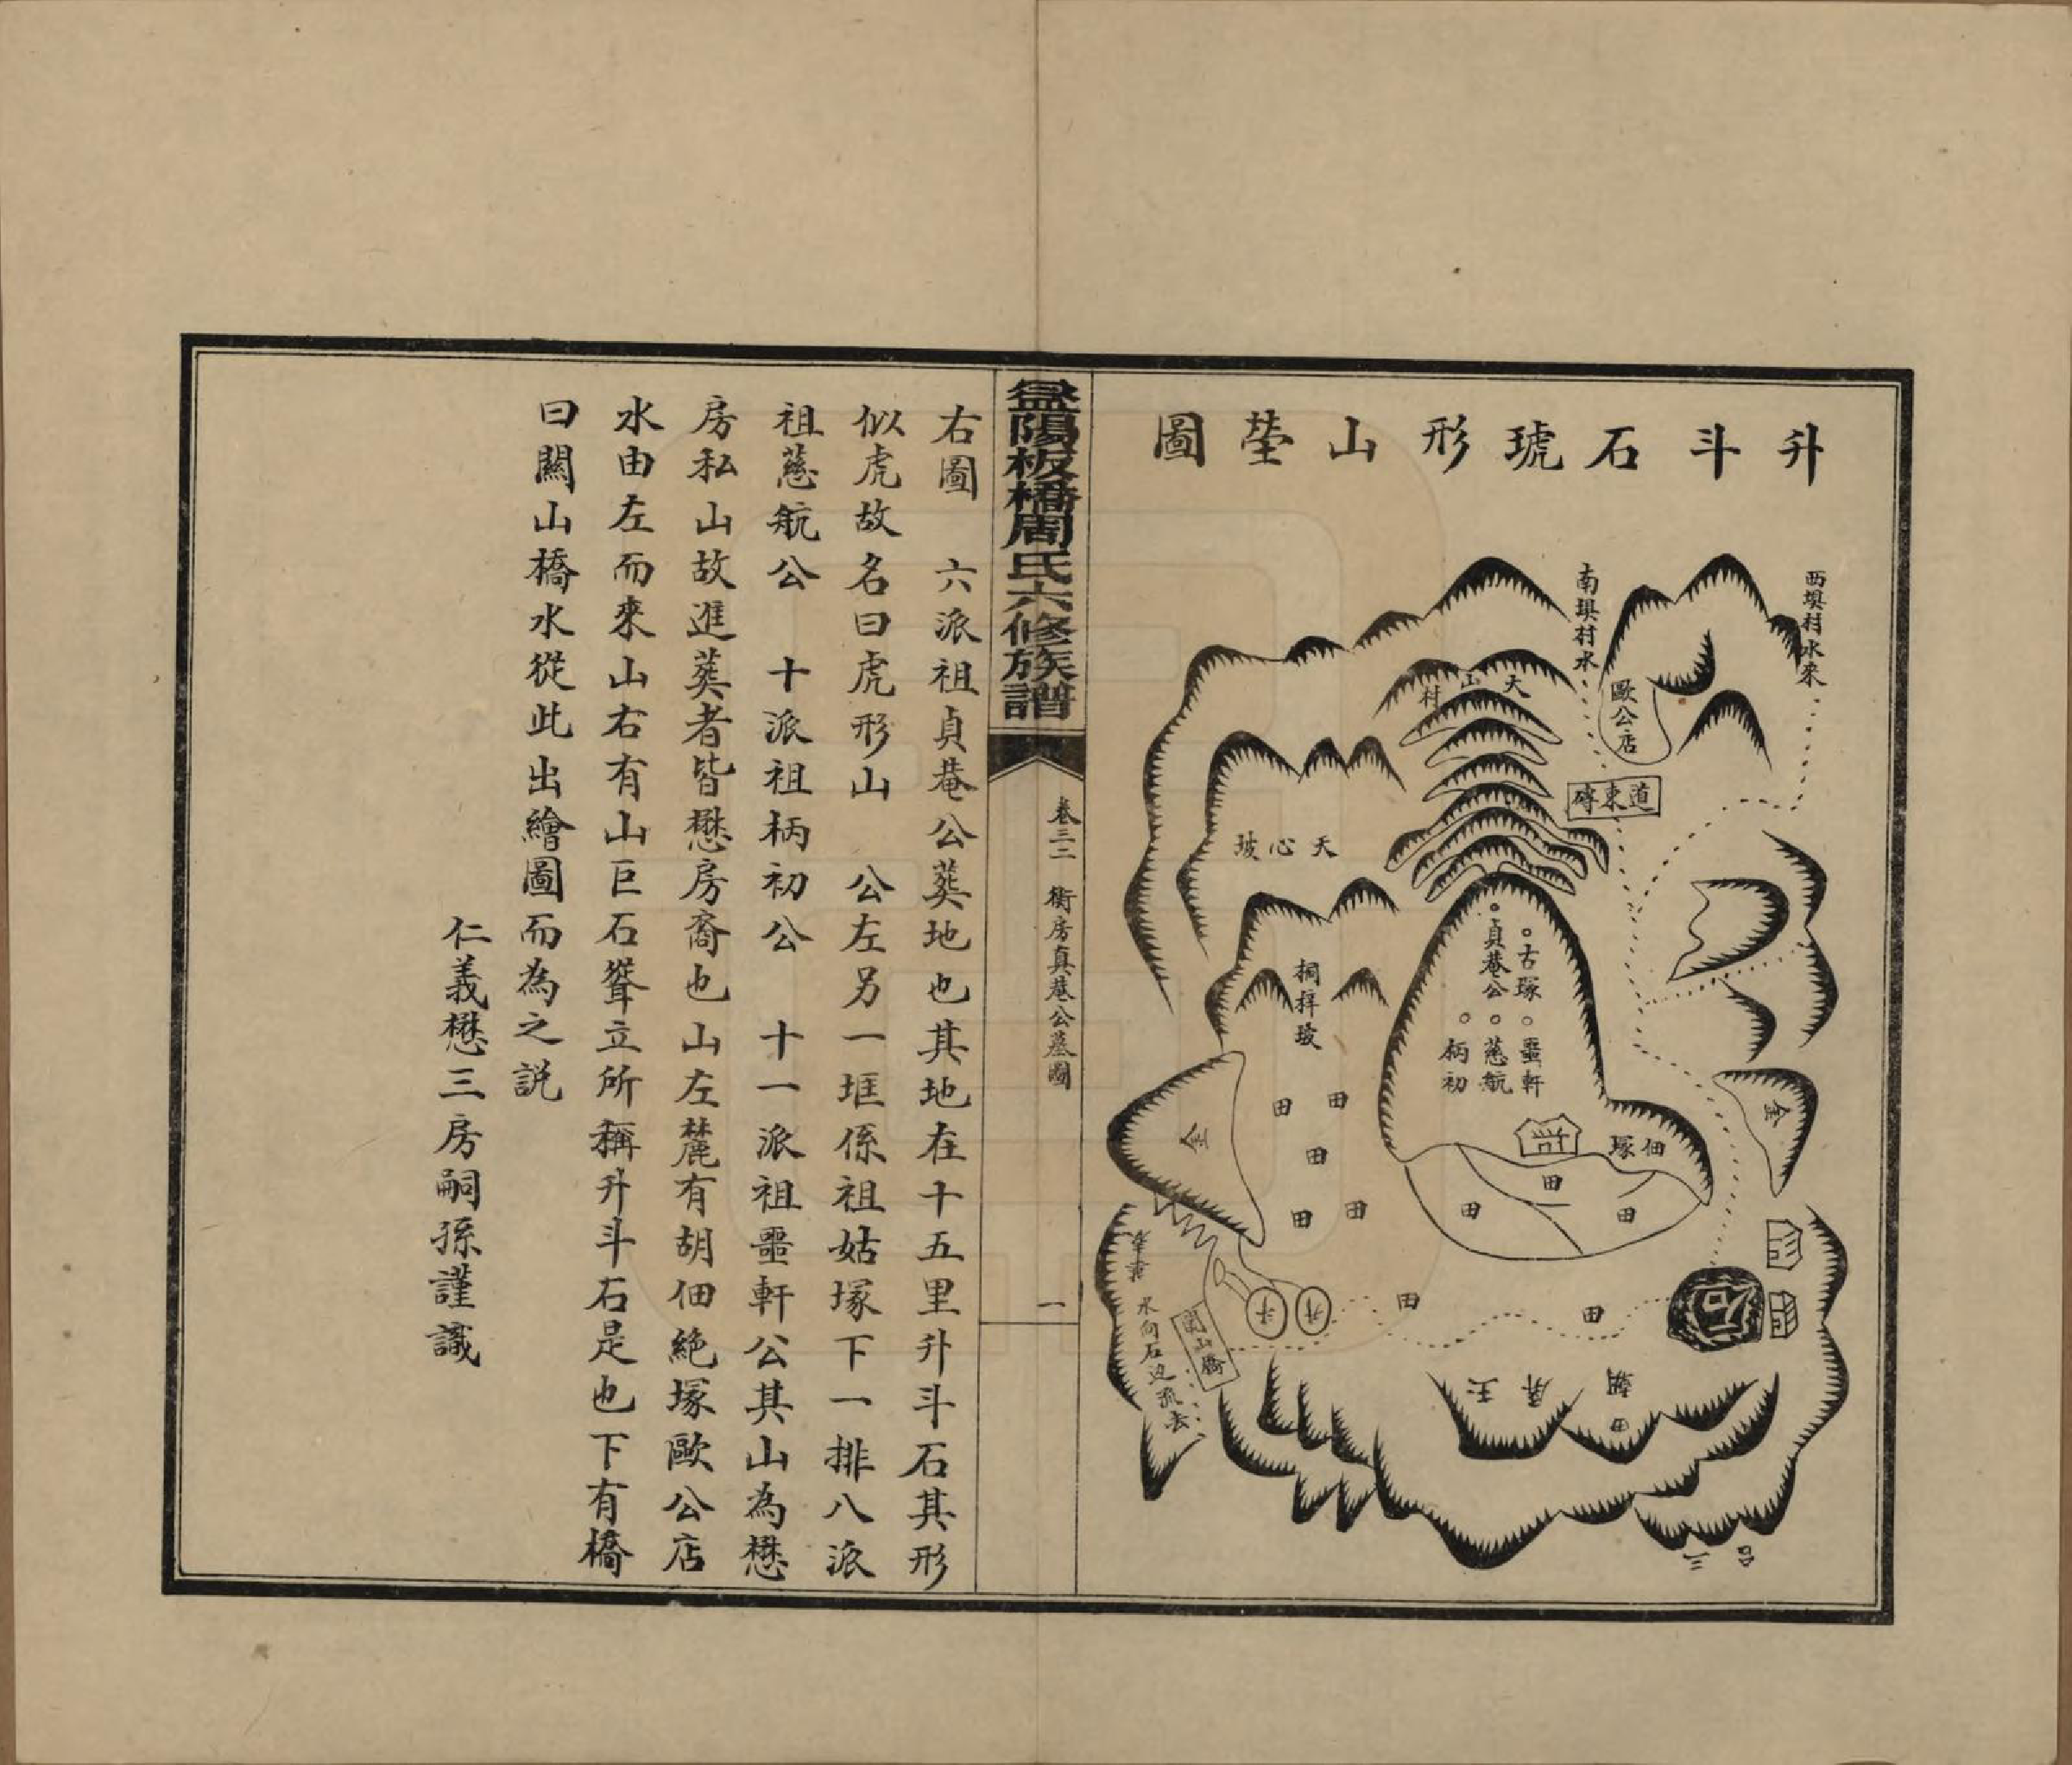 升斗石琥形山塋圖
西塅村水來
南塅村水
歐公店
道東磚
大山村
天心坡
桐梓坡
古塚
貞菴公
噩軒
慈航
柄初
佃塚
莊
金
金
田
田
田
田
田
田
田
田
田
田
石
升
斗
關山橋
水向石边流去
朝田
三台
益陽板橋周氏六修族譜
卷三二 衡房真菴公墓圖
一
右圖 六派祖貞菴公葬地也其地在十五里升斗石其形
似虎故名曰虎形山 公左另一堆係祖姑塚下一排八派
祖慈航公 十派祖柄初公 十一派祖噩軒公其山為懋
房私山故進葬者皆懋房裔也山左麓有胡佃絶塚歐公店
水由左而來山右有山巨石聳立所稱升斗石是也下有橋
曰關山橋水從此出繪圖而為之説
仁義懋三房嗣孫謹識